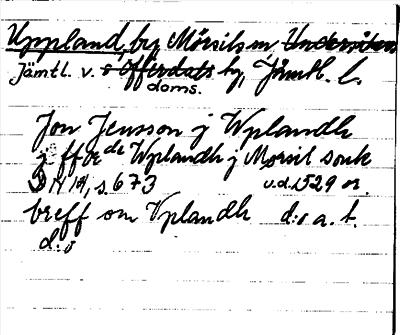 Uppland, by Mörsils sn Undersåkers
Jämtl. v. o Offerdals hg, Jämtl. l.
doms.
Jon Jensson j Wplandh
j ffæ de Wplandh j Morsil sonk
DN 14, s. 673 v.d. 1529 or.
breff om Vplandh d:o a. t.
d:o